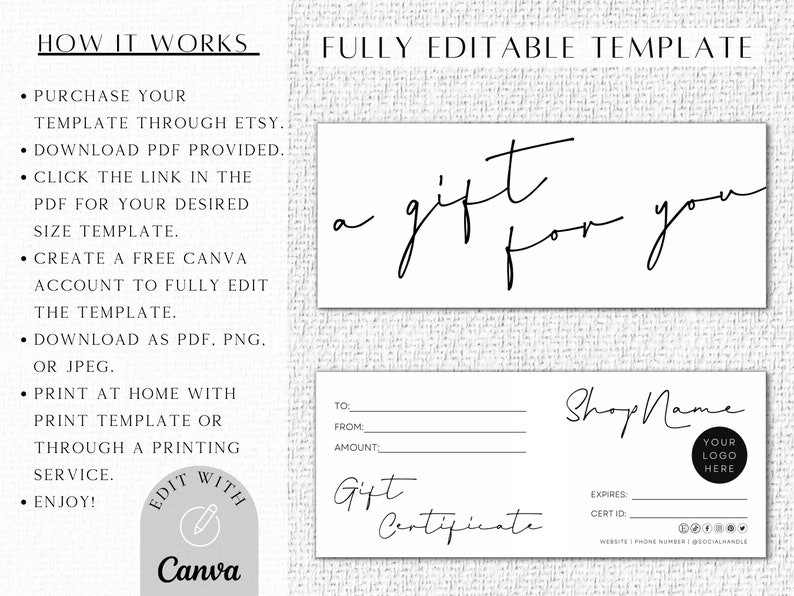 HOW IT WORKS
• PURCHASE YOUR
TEMPLATE THROUGH ETSY.
• DOWNLOAD PDF PROVIDED.
• CLICK THE LINK IN THE
PDF FOR YOUR DESIRED
SIZE TEMPLATE.
• CREATE A FREE CANVA
ACCOUNT TO FULLY EDIT
THE TEMPLATE.
• DOWNLOAD AS PDF, PNG,
OR JPEG.
• PRINT AT HOME WITH
PRINT TEMPLATE OR
THROUGH A PRINTING
SERVICE.
• ENJOY!
EDIT WITH
Canva
FULLY EDITABLE TEMPLATE
a gift
for you
TO:
FROM:
AMOUNT:
Gift
Certificate
ShopName
YOUR
LOGO
HERE
EXPIRES:
CERT ID:
WEBSITE | PHONE NUMBER | @SOCIALHANDLE